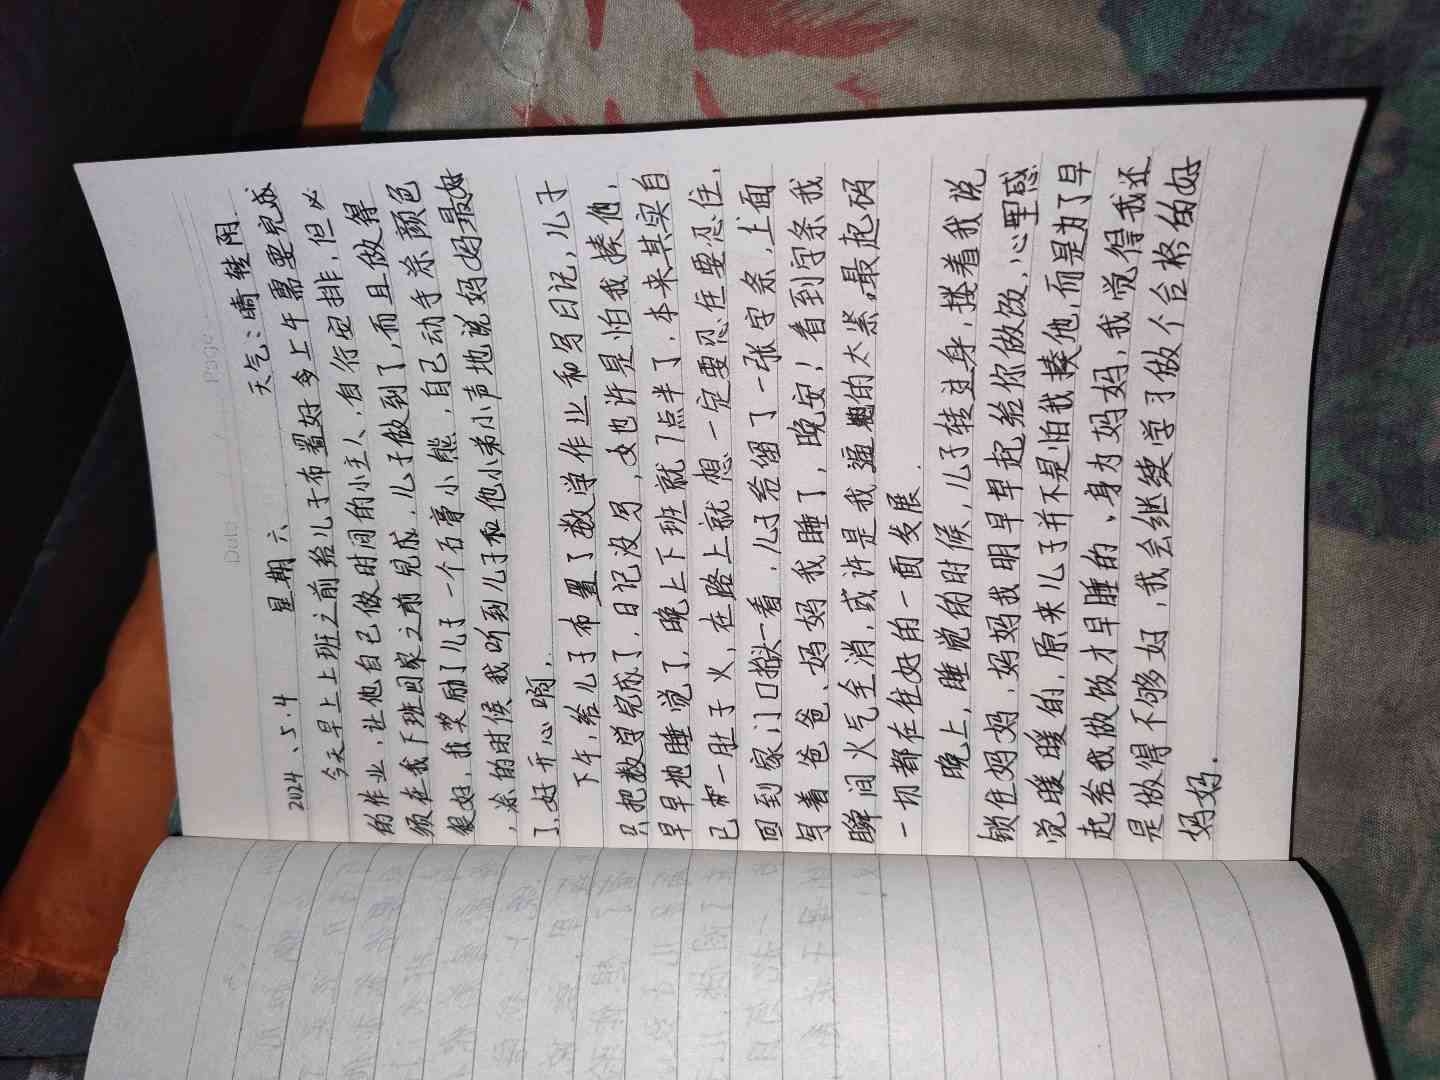 Date
Page
2024、5.4 星期六 天气:晴转阴
今天早上上班之前给儿子布置好今上午需要完成
的作业,让他自己做时间的小主人、自行安排,但必
须在我下班回家之前完成,儿子做到了,而且做得
很好,我奖励了儿子一个石膏小熊,自己动手涂颜色
,涂的时候我听到儿子和他小弟小声地说妈妈好最好
了,好开心啊,.
下午,给儿子布置了数学作业和写日记,儿子
只把数学完成了,日记没写,也许是怕我揍他,
早早地睡觉了,晚上下班就7点半了,本来其实自
已一肚子火,在路上就想一定要忍住要忍住,
回到家门口掀一看,儿子给留了一张字条,上面
写着爸爸、妈妈我睡了,晚安!看到字条我
瞬间火气全消,或许是我逼的太紧,最起码
一切都在往好的一面发展.
晚上,睡觉的时候,儿子转过身,搂着我说
锁住妈妈,妈妈我明早早起给你做饭,心里感
觉暖暖的,原来儿子并不是怕我揍他,而是为了早
起给我做饭才早睡的,身为妈妈,我觉得我还
是做得不够好,我会继续学习做个合格的好
妈妈.